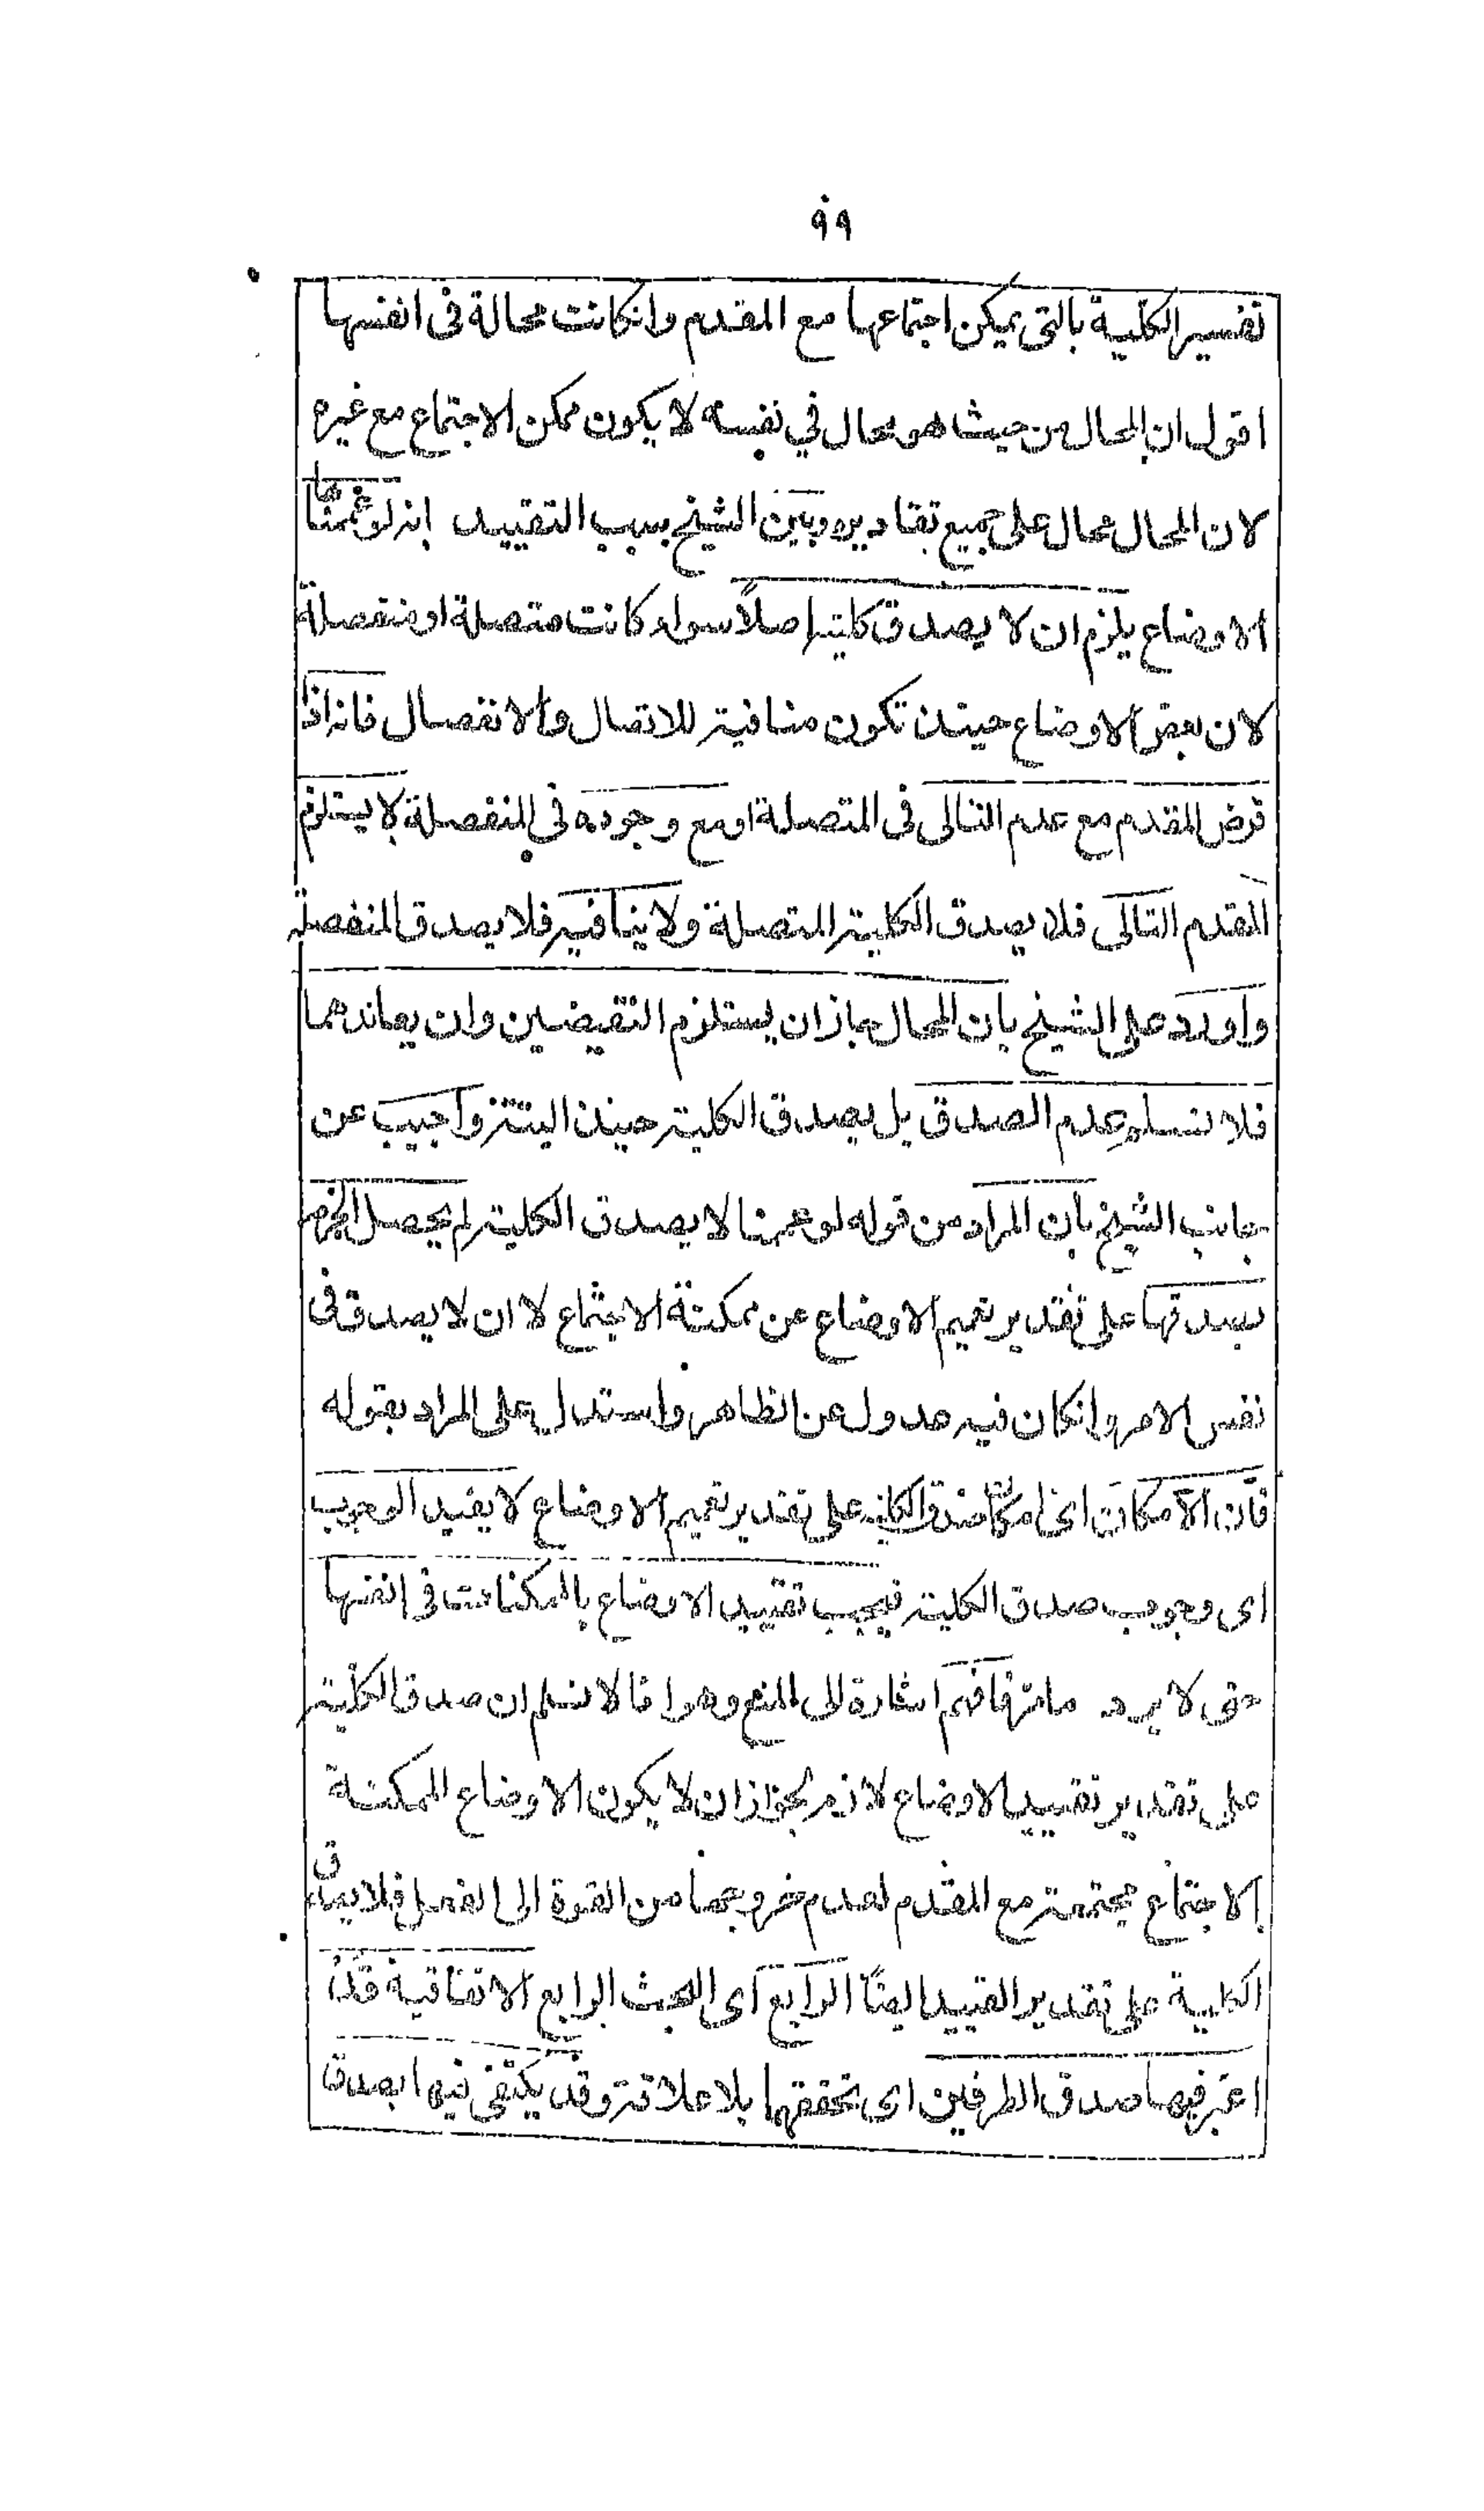 ٩٩
تفسير الكلية بالتى يمكن اجتماعها مع المقدم وانكانت محالة فى انفسها
اقول ان المحال من حيث هو محال في نفسه لا يكون ممكن الاجتماع مع غيره
لان المحال محال على جميع تقاديره وبين الشيخ بسبب التقييد انه لو عممنا
الاوضاع يلزم ان لا يصدق كلية اصلاً سواء كانت متصلة او منفصلة
لان بعض الاوضاع حينئذ تكون منافية للاتصال والانفصال فانه اذا
فرض المقدم مع عدم التالى فى المتصلة او مع وجوده فى المنفصلة لا يستلزم
المقدم التالى فلا يصدق الكلية المتصلة ولا ينافيه فلا يصدق المنفصلة
واورد على الشيخ بان المحال جاز ان يستلزم النقيضين وان يعاندهما
فلا نسلم عدم الصدق بل يصدق الكلية حينئذ البتة واجيب عن
جانب الشيخ بان المراد من قوله لو عممنا لا يصدق الكلية لم يحصل الجزم
بصدقها على تقدير تعميم الاوضاع عن ممكنة الاجتماع لا ان لا يصدق فى
نفس الامر وانكان فيه عدول عن الظاهر واستدل على المراد بقوله
فان الامكان اى امكان صدق الكلية على تقدير تعميم الاوضاع لا يفيد الوجوب
اى وجوب صدق الكلية فيجب تقييد الاوضاع بالممكنات فى انفسها
حتى لا يرد ما مر فافهم اشارة الى المنع وهو انا لا نسلم ان صدق الكلية
على تقدير تقييد الاوضاع لازم لجواز ان لا يكون الاوضاع الممكنة
الاجتماع مجتمعة مع المقدم لعدم خروجها من القوة الى الفعل فلا يصدق
الكلية على تقدير التقييد ايضاً الرابع اى البحث الرابع الاتفاقية قد
اعتبر فيها صدق الطرفين اى تحققهما بلا علاقة وقد يكتفى فيها بصدق